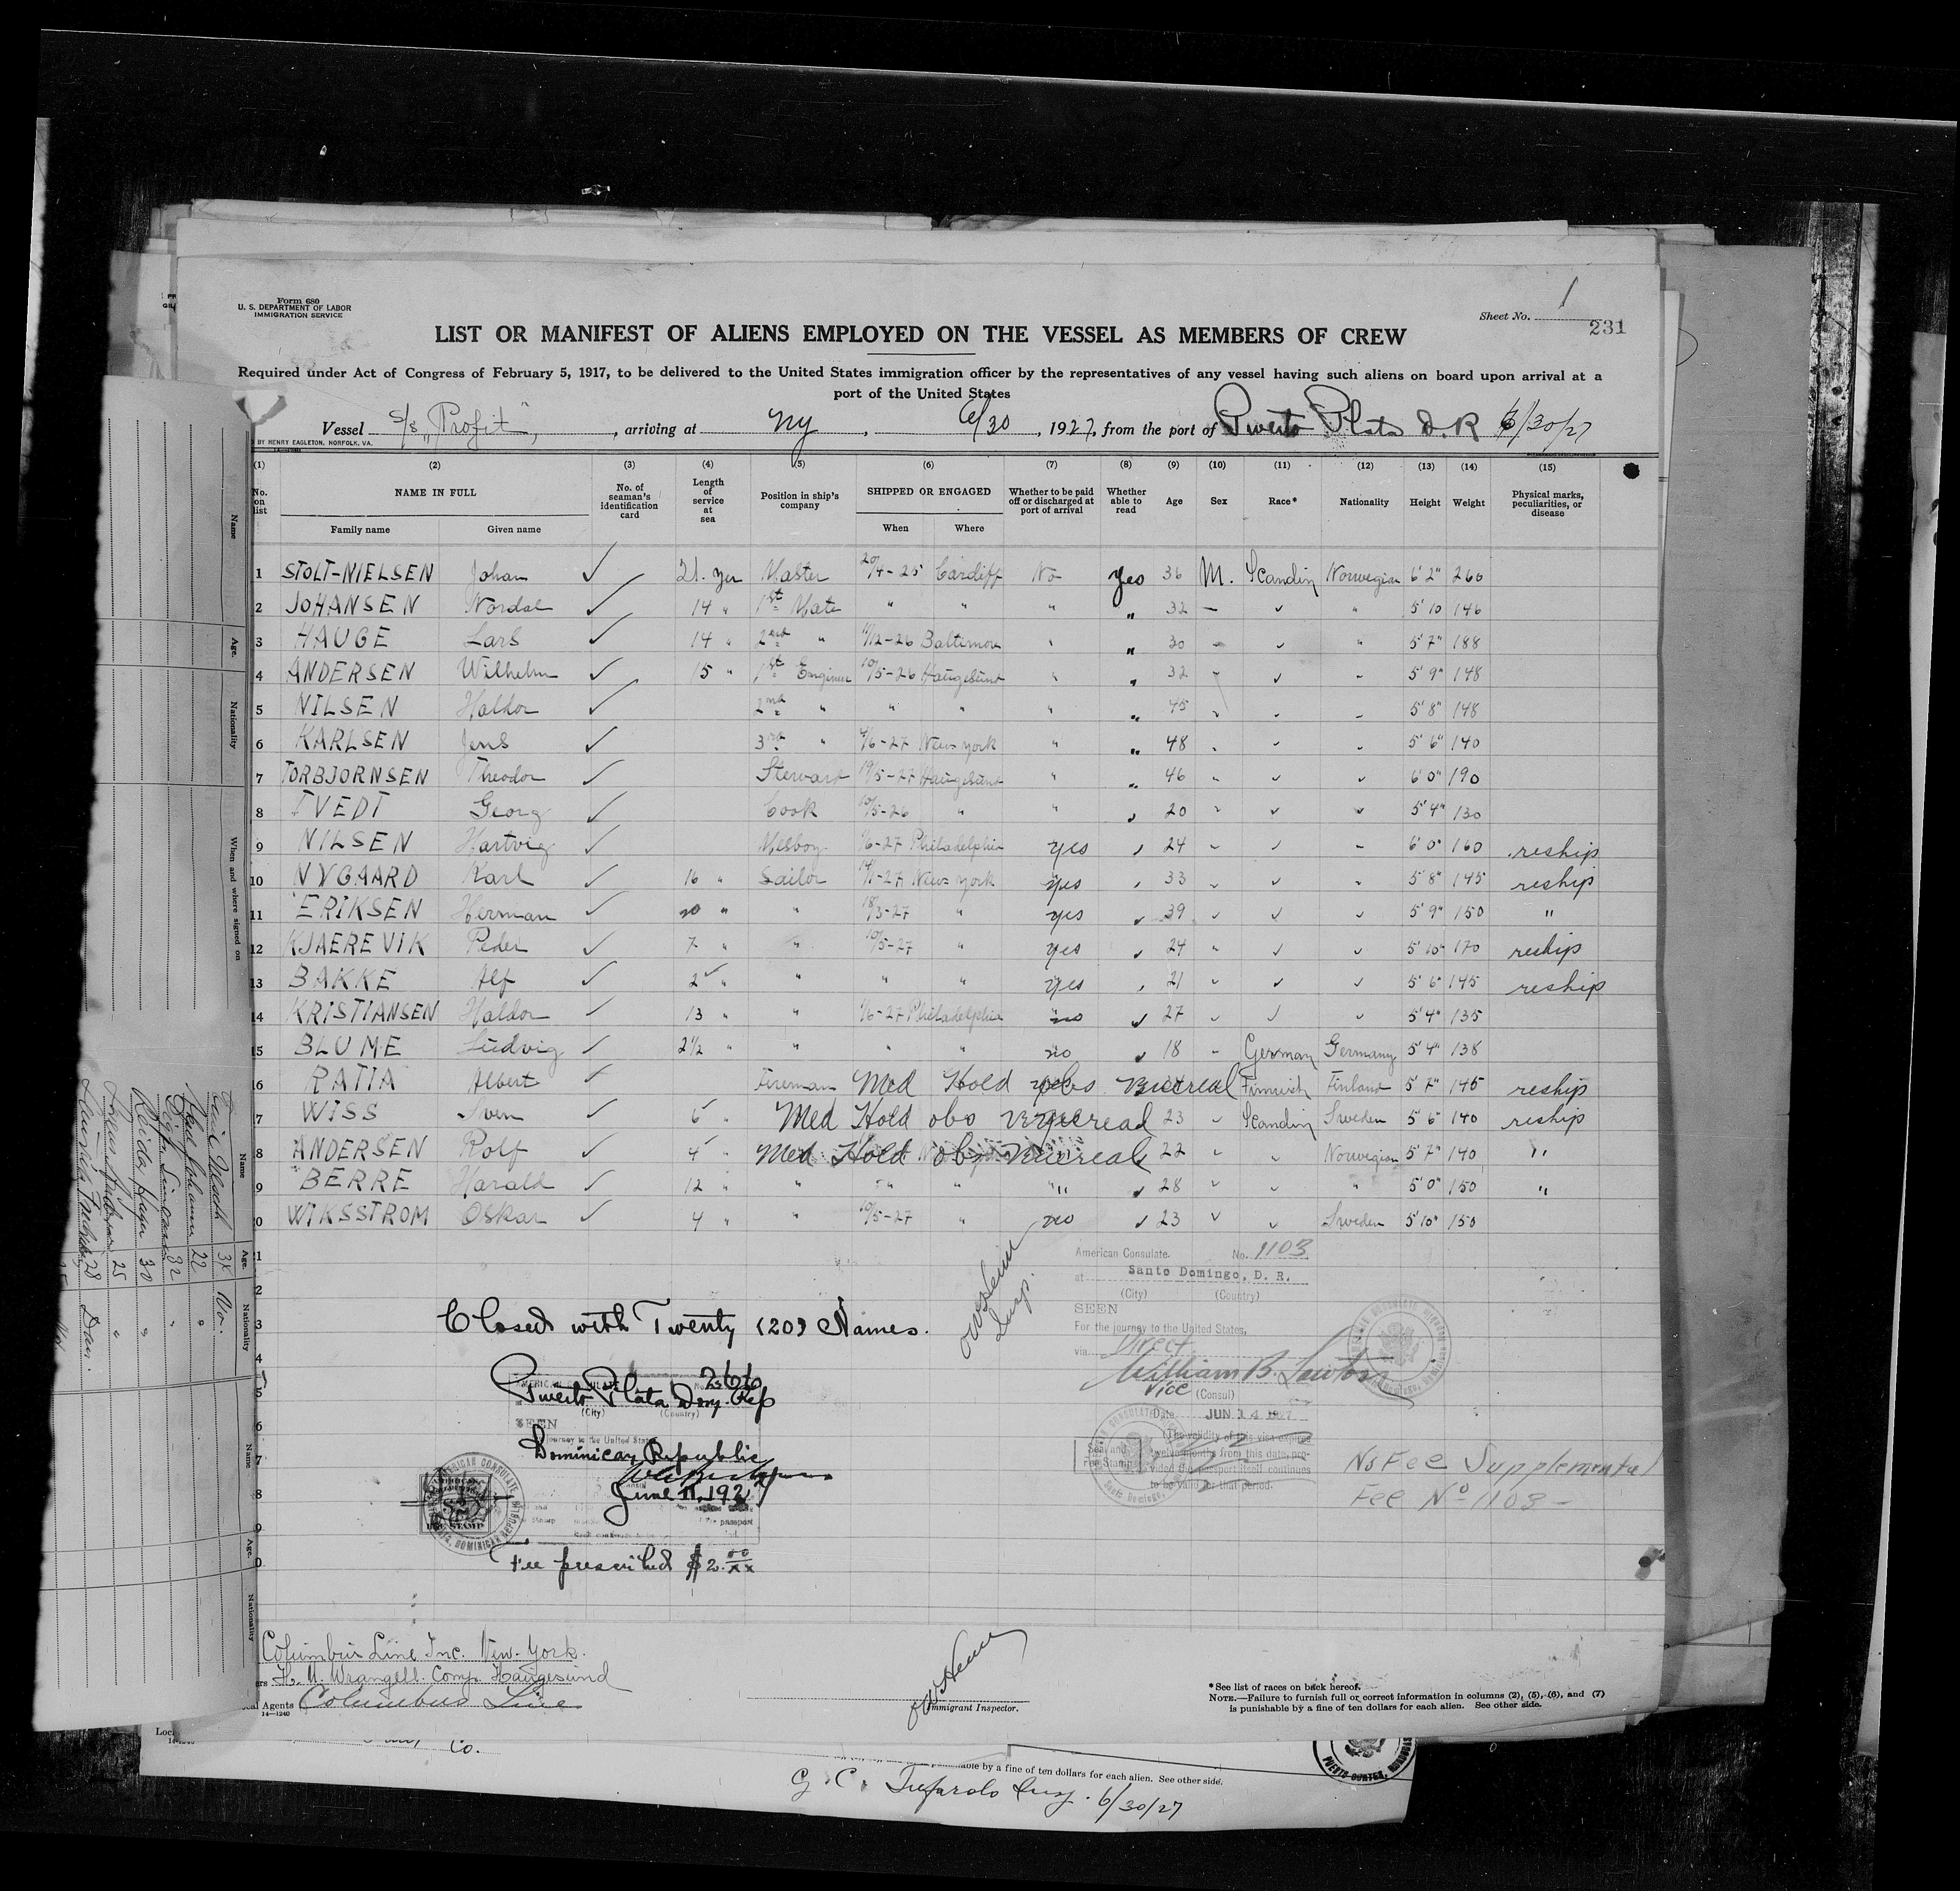 Form 680
U. S. DEPARTMENT OF LABOR
IMMIGRATION SERVICE
Sheet No. 1
231
LIST OR MANIFEST OF ALIENS EMPLOYED ON THE VESSEL AS MEMBERS OF CREW
Required under Act of Congress of February 5, 1917, to be delivered to the United States immigration officer by the representatives of any vessel having such aliens on board upon arrival at a
port of the United States
Vessel S/S "Profit", arriving at NY, 6/30, 1927, from the port of Puerto Plata D. R 6/30/27
BY HENRY EAGLETON, NORFOLK, VA.
(1) (2) (3) (4) (5) (6) (7) (8) (9) (10) (11) (12) (13) (14) (15)
No. on list NAME IN FULL No. of seaman's identification card Length of service at sea Position in ship's company SHIPPED OR ENGAGED Whether to be paid off or discharged at port of arrival Whether able to read Age Sex Race* Nationality Height Weight Physical marks, peculiarities, or disease
Family name Given name When Where
1 STOLT-NIELSEN Johan ✓ 21. yer Master 20/4-25 Cardiff No yes 36 M. Scandin Norwegian 6' 2" 260
2 JOHANSEN Nordal ✓ 14 " 1st Mate " " " " 32 — ✓ " 5' 10 146
3 HAUGE Lars ✓ 14 " 2nd " 11/12-26 Baltimore " " 30 - ✓ " 5' 7" 188
4 ANDERSEN Wilhelm ✓ 15 " 1st Engineer 10/5-26 Haugesund " " 32 " ✓ " 5' 9" 148
5 NILSEN Haldor ✓ 2nd " " " " " 45 " ✓ " 5' 8" 148
6 KARLSEN Jens ✓ 3rd " 4/6-27 New York " " 48 " ✓ " 5' 6" 140
7 TORBJORNSEN Theodor ✓ Stewart 19/5-27 Haugesund " " 46 " ✓ ✓ 6' 0" 190
8 TVEDT Georg ✓ Cook 10/5-26 " " " 20 " ✓ ✓ 5' 4" 130
9 NILSEN Hartvig ✓ Mesboy 1/6-27 Philadelphia yes " 24 ✓ ✓ " 6' 0" 160 reship
10 NYGAARD Karl ✓ 16 " Sailor -27 New York yes " 33 ✓ ✓ " 5' 8" 145 reship
11 ERIKSEN Herman ✓ 20 " " 18/3-27 " yes " 39 ✓ ✓ ✓ 5' 9" 150 "
12 KJAEREVIK Peder ✓ 7 " " 10/5-27 " yes " 24 " ✓ ✓ 5' 10" 170 reship
13 BAKKE Alf ✓ 2 " " " " yes " 21 ✓ ✓ ✓ 5' 6" 145 reship
14 KRISTIANSEN Haldor ✓ 13 " " 1/6-27 Philadelphia no " 27 ✓ ✓ ✓ 5' 4" 135
15 BLUME Ludvig ✓ 2 1/2 " " " " no " 18 " German Germany 5' 4" 138
16 RATIA Albert ✓ Fireman Med Hold obs Venereal Finnish Finland 5' 7" 145 reship
17 WISS Sven ✓ 6 " Med Hold obs Venereal 23 ✓ Scandin Sweden 5' 6" 140 reship
18 ANDERSEN Rolf ✓ 4 " Med Hold obs Venereal 22 ✓ ✓ Norwegian 5' 7" 140 "
19 BERRE Harald ✓ 12 " " " " " " 28 ✓ ✓ " 5' 0" 150 "
20 WIKSSTROM Oskar ✓ 4 " " 10/5-27 " no " 23 ✓ ✓ Sweden 5' 10" 150
American Consulate. No. 1103
at Santo Domingo, D. R.
(City) (Country)
SEEN
For the journey to the United States,
via Direct
William B. Lawton
Vice (Consul)
Date JUN 14 1927
(The validity of this visa expires
twelve months from this date, pro-
vided the passport itself continues
to be valid for that period.
Seal and
Fee Stamp
Closed with Twenty (20) Names.
2660
Puerto Plata Dom. Rep
(City) (Country)
SEEN
journey to the United States
Dominican Republic
June 11, 1927
Fee prescribed $2.00/xx
No Fee Supplemental
Fee No 1103 -
Insp.
Columbus Line Inc. New-York.
H. M. Wrangell. Comp. Haugesund
Agents Columbus Line
14—1240
Immigrant Inspector.
*See list of races on back hereof.
NOTE.—Failure to furnish full or correct information in columns (2), (5), (6), and (7)
is punishable by a fine of ten dollars for each alien. See other side.
Co.
able by a fine of ten dollars for each alien. See other side.
6/30/27
Name
Age.
Nationality
When and where signed on
Name
Age.
Nationality
Name
Age.
Nationality
22
32
30
25
28
Dan.